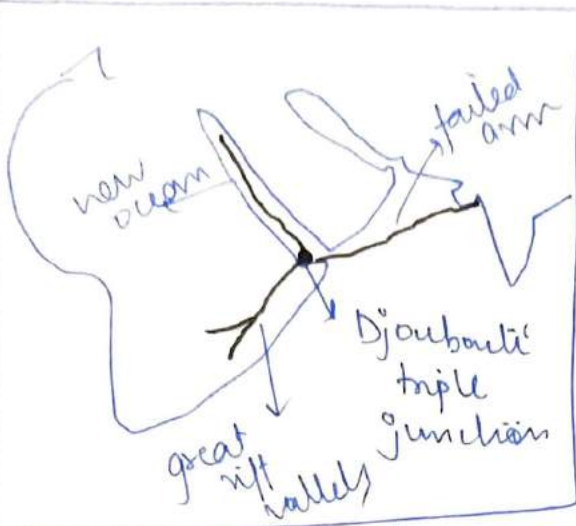 new
ocean
failed
arm
Djoubouti
triple
junction
great
rift
valley